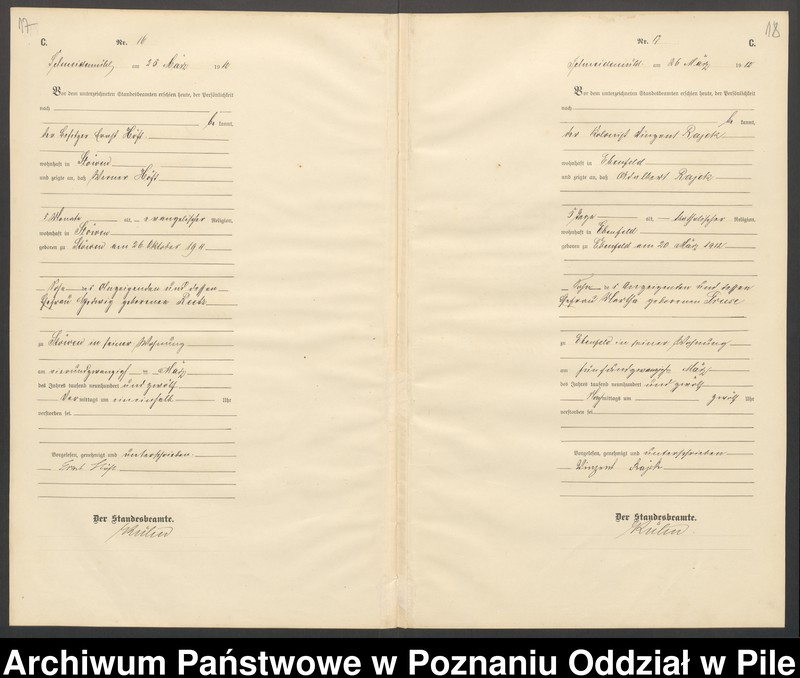 17
C.
Nr. 16
Schneidemühl, am 25 März 1912
Vor dem unterzeichneten Standesbeamten erschien heute, der Persönlichkeit
nach
be kannt,
der Besitzer Ernst
wohnhaft in Stöwen
und zeigte an, daß Werner
5 Monate alt, evangelischer Religion,
wohnhaft in Stöwen
geboren zu Stöwen am 26 Oktober 1911
Sohn des Anzeigenden und dessen
Ehefrau Hedwig geborenen
zu Stöwen in seiner Wohnung
am vierundzwanzigsten März
des Jahres tausend neunhundert und zwölf
Vor mittags um Uhr
verstorben sei.
Vorgelesen, genehmigt und unterschrieben
Ernst
Der Standesbeamte.
18
Nr. C.
Schneidemühl am 26 März 1912
Vor dem unterzeichneten Standesbeamten erschien heute, der Persönlichkeit
nach
be kannt,
der Kolonist Vinzent Rajek
wohnhaft in Ebenfeld
und zeigte an, daß Adalbert Rajek
5 Tage alt, katholischer Religion,
wohnhaft in Ebenfeld
geboren zu Ebenfeld am 20 März 1912
Sohn des Anzeigenden und dessen
Ehefrau Martha geborenen
zu Ebenfeld in seiner Wohnung
am fünfundzwanzigsten März
des Jahres tausend neunhundert und zwölf
Nachmittags um zwölf Uhr
verstorben sei.
Vorgelesen, genehmigt und unterschrieben
Vinzent Rajek
Der Standesbeamte.
Archiwum Państwowe w Poznaniu Oddział w Pile